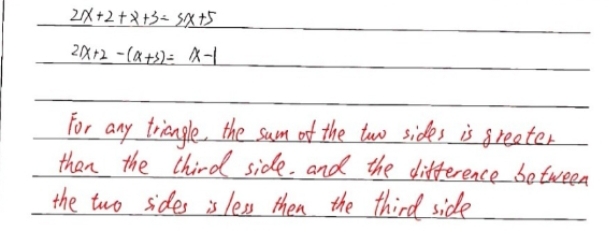 2x+2+x+3=3x+5
2x+2-(x+3)=x-1
For any triangle, the sum of the two sides is greater
than the third side. and the difference between
the two sides is less then the third side